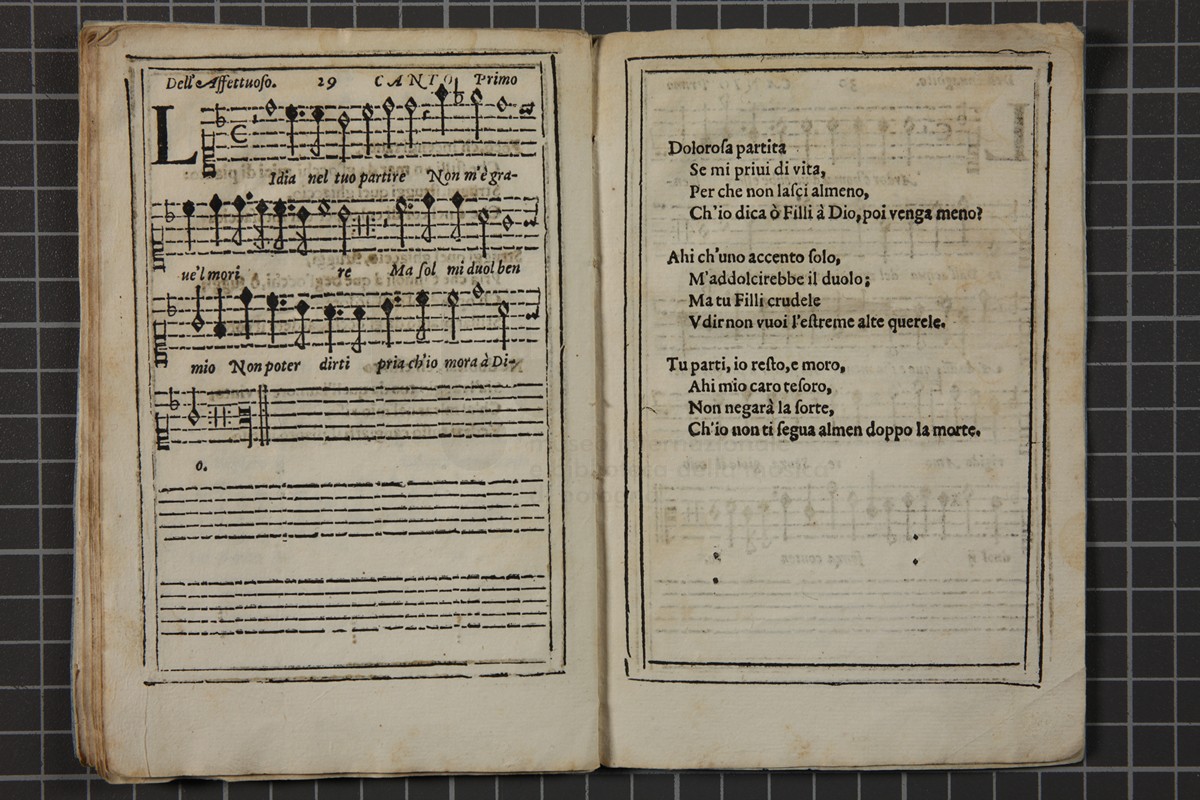 Dell'Affettuoso. 29 CANTO Primo
L
Idia nel tuo partire Non m'è gra-
ue'l mori re Ma sol mi duol ben
mio Non poter dirti pria ch'io mora à Di-
o.
Dolorosa partita
Se mi priui di vita,
Per che non lasçi almeno,
Ch'io dica ò Filli à Dio, poi venga meno?
Ahi ch'uno accento solo,
M'addolcirebbe il duolo;
Ma tu Filli crudele
Vdir non vuoi l'estreme alte querele.
Tu parti, io resto, e moro,
Ahi mio caro tesoro,
Non negarà la sorte,
Ch'io non ti segua almen doppo la morte.